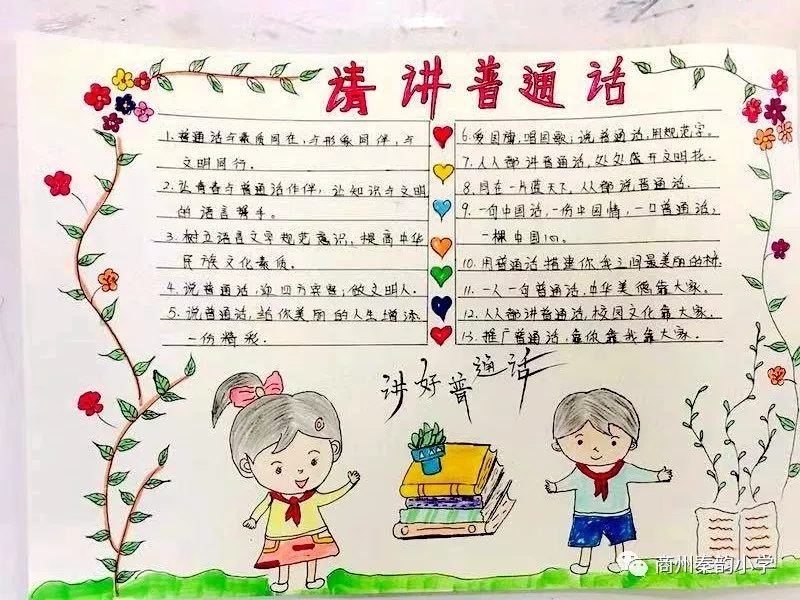 请讲普通话
1. 普通话与素质同在,与形象同伴,与
文明同行.
2. 让青春与普通话作伴,让知识与文明
的语言携手。
3. 树立语言文字规范意识,提高中华
民族文化素质。
4. 说普通话,迎四方宾客;做文明人.
5. 说普通话,给你美丽的人生增添
一份精彩.
6. 爱国旗,唱国歌;说普通话,用规范字。
7. 人人都讲普通话,处处盛开文明花.
8. 同在一片蓝天下,人人都说普通话.
9. 一句中国话,一份中国情,一口普通话,
一颗中国心。
10. 用普通话搭建你我之间最美丽的桥.
11. 一人一句普通话,中华美德靠大家。
12. 人人都讲普通话,校园文化靠大家.
13. 推广普通话,靠你靠我靠大家.
讲好普通话
商州秦韵小学